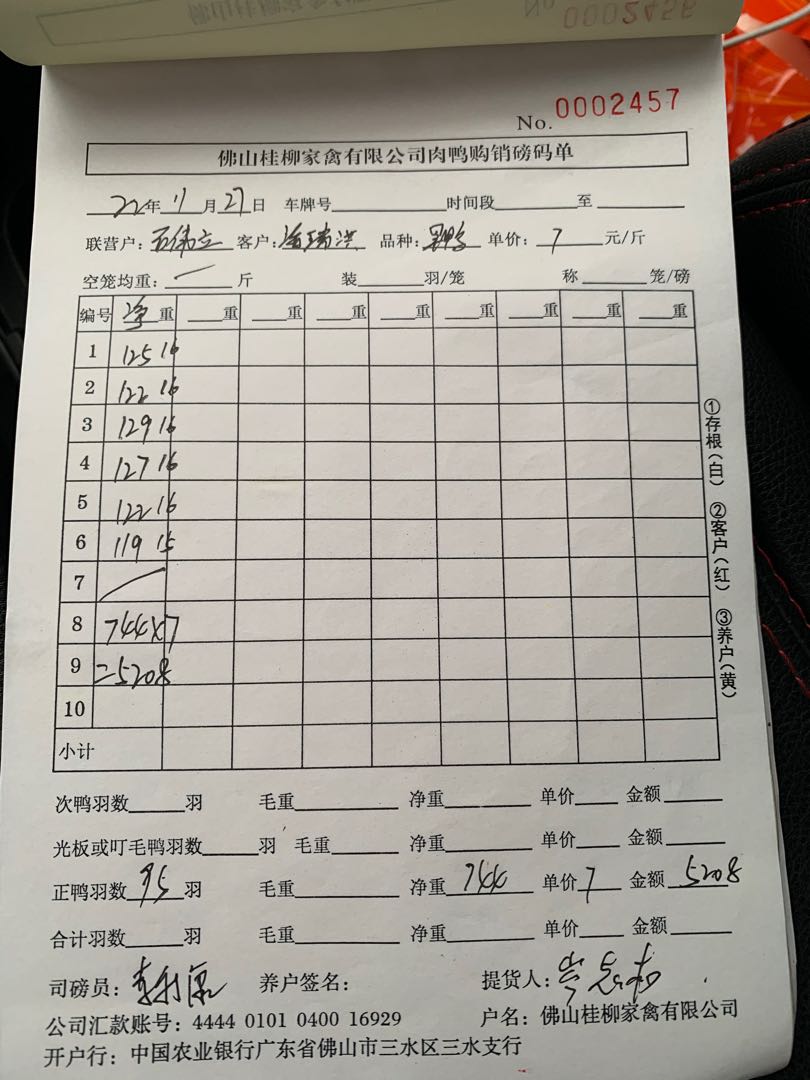 No. 0002456
No. 0002457
佛山桂柳家禽有限公司肉鸭购销磅码单
22年 11月 27日 车牌号 时间段 至
联营户: 石伟立 客户: 瑞洪 品种: 鸭 单价: 7 元/斤
空笼均重: 斤 装 羽/笼 称 笼/磅
编号 净重 重 重 重 重 重 重 重 重
1 125 16
2 122 16
3 129 16
4 127 16
5 122 16
6 119 15
7
8 744×7
9 =5208
10
小计
①存根(白) ②客户(红) ③养户(黄)
次鸭羽数 羽 毛重 净重 单价 金额
光板或叮毛鸭羽数 羽 毛重 净重 单价 金额
正鸭羽数 95 羽 毛重 净重 744 单价 7 金额 5208
合计羽数 羽 毛重 净重 单价 金额
司磅员: 养户签名: 提货人:
公司汇款账号: 4444 0101 0400 16929 户名: 佛山桂柳家禽有限公司
开户行: 中国农业银行广东省佛山市三水区三水支行